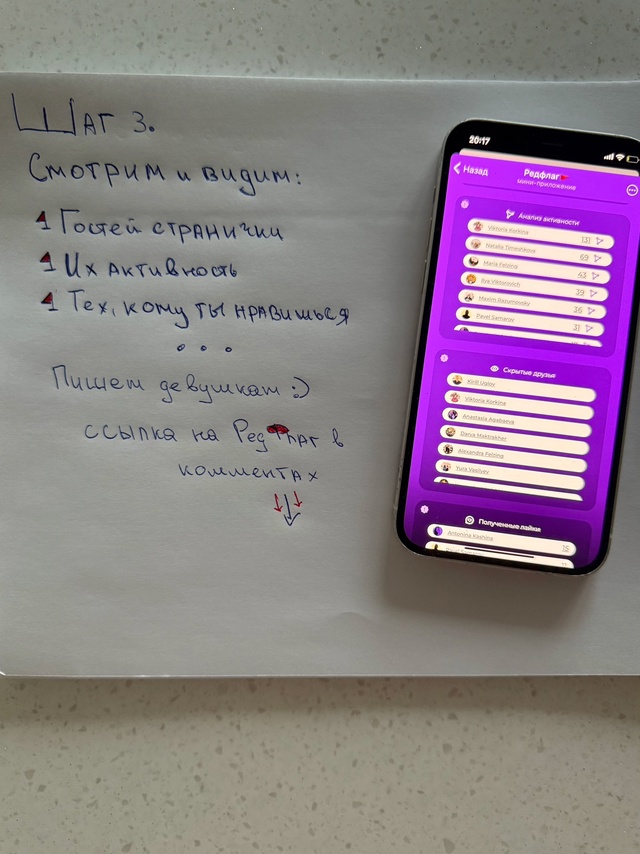 Шаг 3.
Смотрим и видим:
1 Гостей странички
1 Их активность
1 Тех, кому ты нравишься
...
Пишем девушкам :)
ссылка на Редфлаг в
комментах
20:17
Назад
Редфлаг
мини-приложение
Анализ активности
Viktoria Korkina 131
Natalia Timeshkova 69
Maria Felzing 43
Ilya Viktorovich 39
Maxim Razumovsky 36
Pavel Samarov 31
Скрытые друзья
Kirill Uglov
Viktoria Korkina
Anastasia Agabaeva
Darya Maktrakher
Alexandra Felzing
Yura Vasilyev
Полученные лайки
Antonina Kashina 15